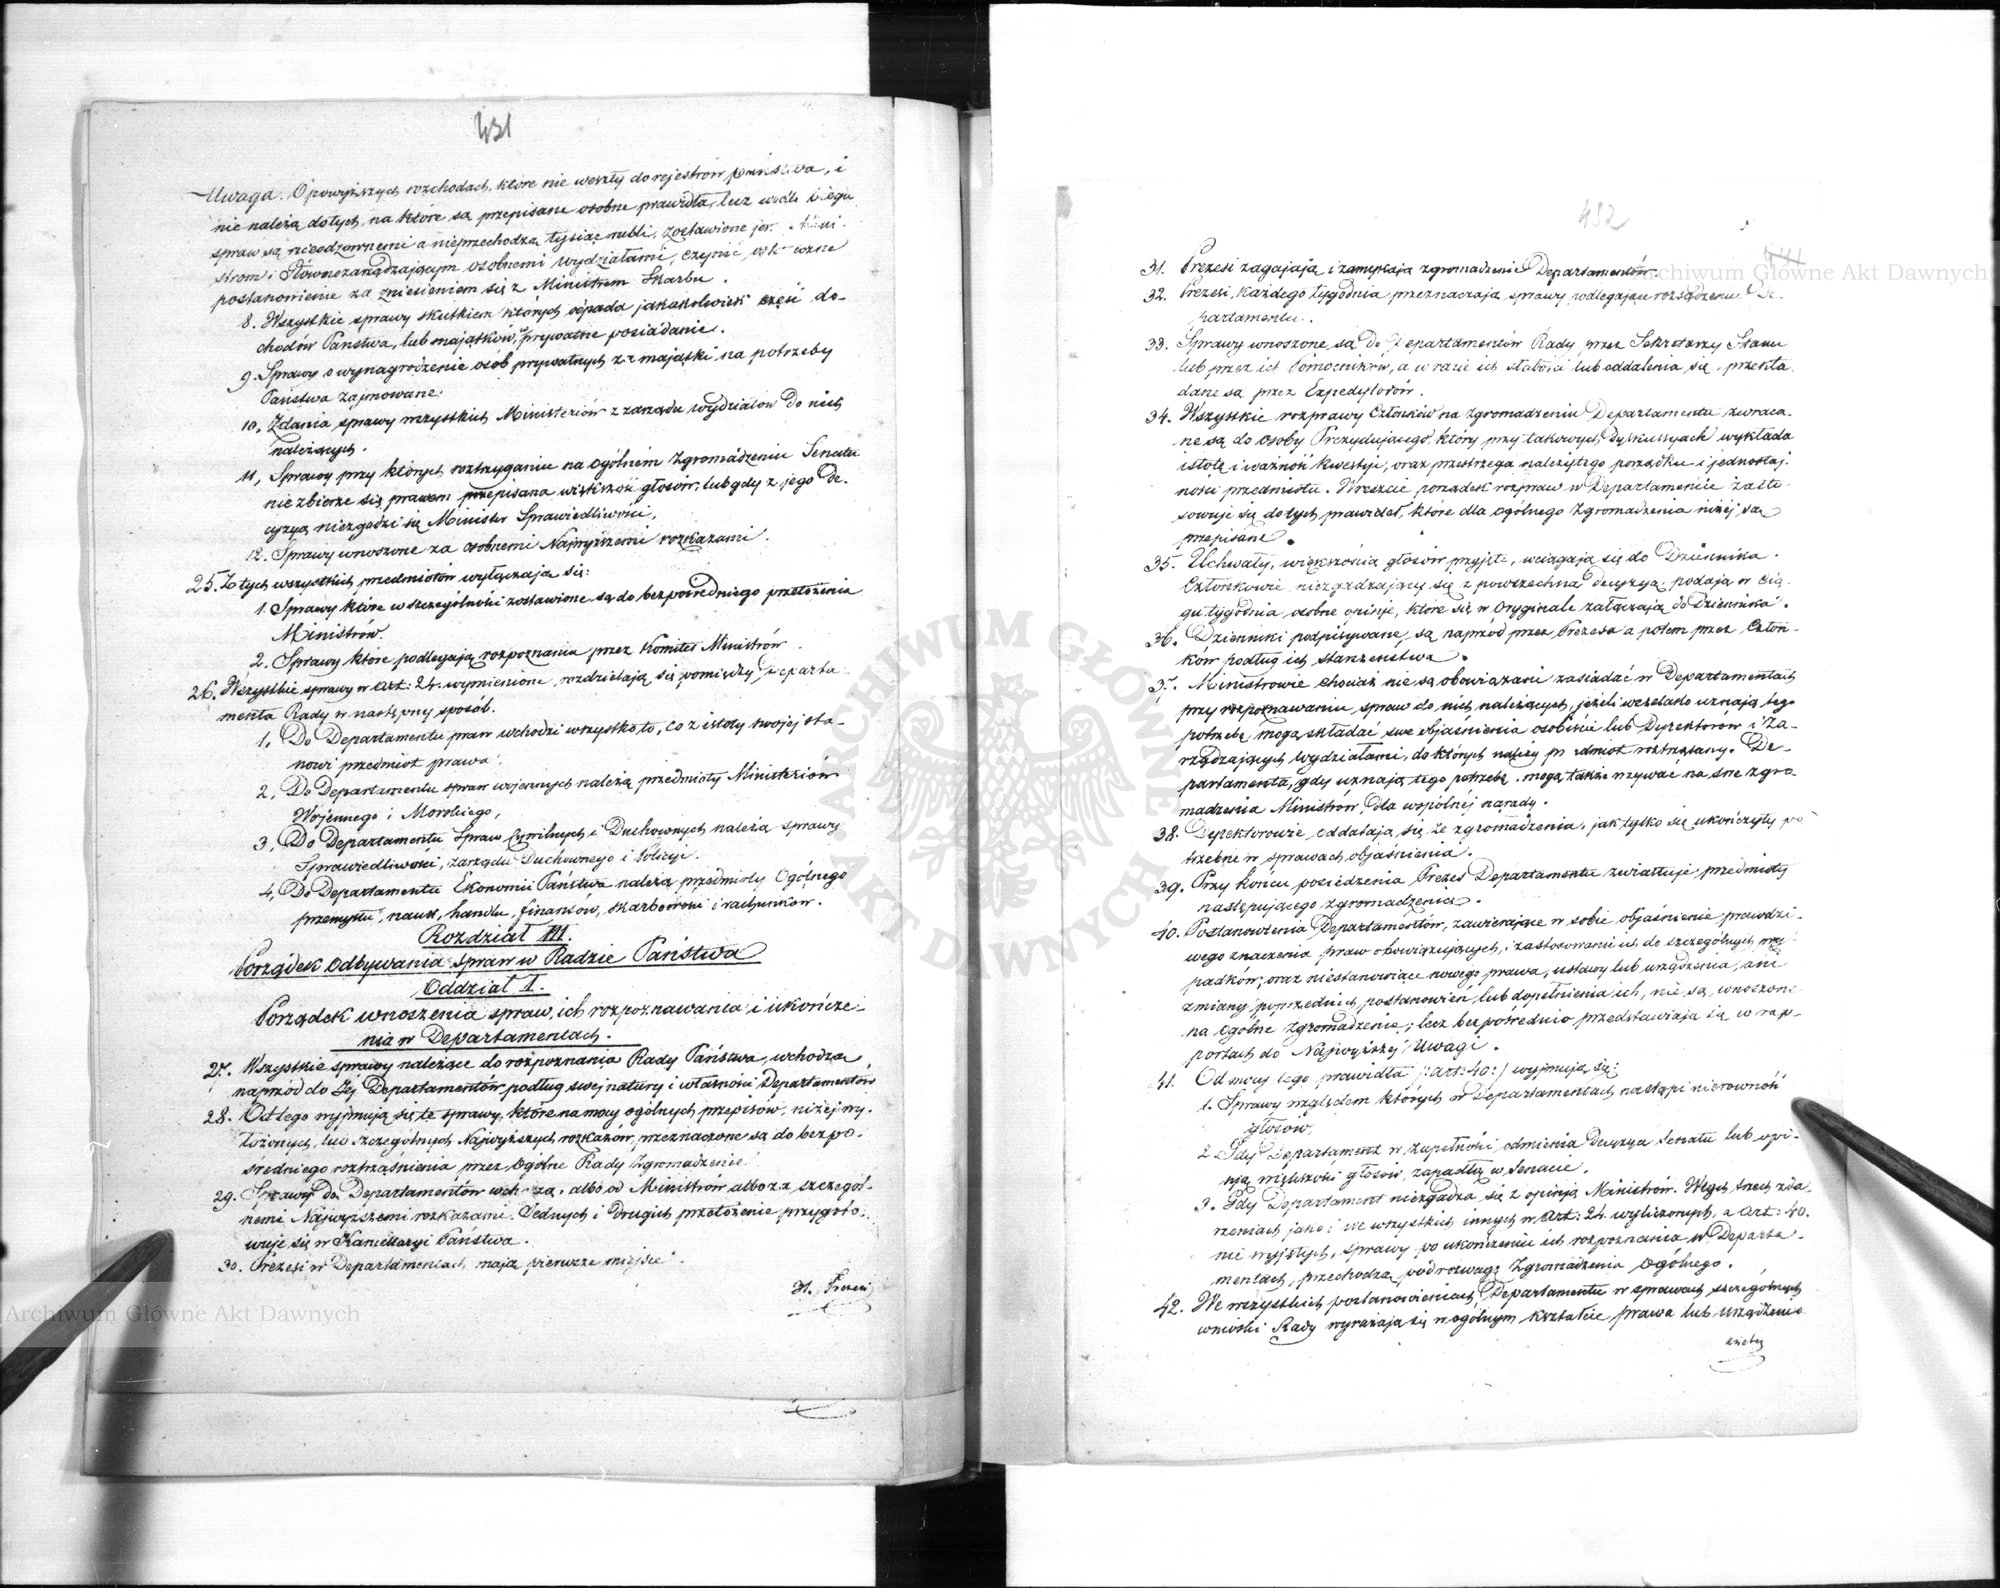 431
Uwaga. O powyższych rozchodach, które nie weszły do rejestrów państwa, i
nie należą do tych, na które są przepisane osobne prawidła, lecz wedle biegu
spraw są nieodzownemi a nieprzechodzą tysiąc rubli, zostawione jest Mini-
strom i Głównozarządzającym osobnemi wydziałami, czynić
postanowienie za zniesieniem się z Ministrem Skarbu.
8. Wszystkie sprawy skutkiem których odpada jakakolwiek część do-
chodów Państwa, lub majątków, w prywatne posiadanie.
9. Sprawy o wynagrodzenie osób prywatnych za majątki na potrzeby
Państwa zajmowane.
10, Zdania sprawy wszystkich Ministeriów z zarządu wydziałów do nich
należących.
11, Sprawy przy których roztrzyganiu na ogólném Zgromadzeniu Senatu
nie zbierze się prawem przepisana większość głosów, lub gdy z jego de-
cyzyą niezgodzi się Minister Sprawiedliwości,
12. Sprawy wnoszone za osobnemi Najwyższemi rozkazami.
25. Z tych wszystkich przedmiotów wyłączają się:
1. Sprawy które w szczególności zostawione są do bezpośredniego przełożenia
Ministrów.
2. Sprawy które podlegają rozpoznaniu przez Komitet Ministrów
26. Wszystkie sprawy w art: 24. wymienione, rozdzielają się pomiędzy Departa-
menta Rady w następny sposób.
1, Do Departamentu praw wchodzi wszystko to, co z istoty swojej sta-
nowi przedmiot prawa.
2, Do Departamentu spraw wojennych należą przedmioty Ministeriów
Wojennego i Morskiego,
3, Do Departamentu Spraw Cywilnych i Duchownych należą sprawy
Sprawiedliwości, zarządu Duchownego i Policyi.
4, Do Departamentu Ekonomii Państwa należą przedmioty Ogólnego
przemysłu, nauk, handlu, finansów, skarbowości i rachunków.
Rozdział III.
Porządek odbywania spraw w Radzie Państwa
Oddział I.
Porządek wnoszenia spraw, ich rozpoznawania i ukończe-
nia w Departamentach.
27. Wszystkie sprawy należące do rozpoznania Rady Państwa, wchodzą
naprzód do Jej Departamentów podług swej natury i własności Departamentów
28. Od tego wyjmują się te sprawy, które na mocy ogólnych przepisów, niżej wy-
łożonych, lub szczególnych Najwyższych rozkazów, przeznaczone są do bezpo-
średniego roztrząśnienia przez Ogólne Rady Zgromadzenie.
29. Sprawy do Departamentów wchodzą, albo od Ministrów albo za szczegól-
nemi Najwyższemi rozkazami. Jednych i drugich przełożenie przygoto-
wuje się w Kancellaryi Państwa.
30. Prezesi w Departamentach mają pierwsze miejsce.
31. Prezesi
432
31. Prezesi zagajają i zamykają zgromadzenie Departamentów.
32. Prezesi, każdego tygodnia przeznaczają sprawy, podlegające rozsądzeniu De-
partamentu.
33. Sprawy wnoszone są do Departamentów Rady przez Sekretarzy Stanu
lub przez ich Pomocników, a w razie ich słabości lub oddalenia się, przekła-
dane są przez Expedytorów.
34. Wszystkie rozprawy Członków na zgromadzeniu Departamentu zwraca-
ne są do osoby Prezydującego, który przy takowych dyskussyach wykłada
istotę i ważność kwestyi, oraz przestrzega należytego porządku i jednostaj-
ności przedmiotu. Wreszcie porządek rozpraw w Departamencie zasto-
sowuje się do tych prawideł, które dla ogólnego Zgromadzenia niżéj są
przepisane.
35. Uchwały, większością głosów przyjęte, wciągają się do Dziennika.
Członkowie niezgadzający się z powszechną decyzyą, podają w cią-
gu tygodnia osobne opinje, które się w Oryginale załączają do Dziennika.
36. Dzienniki podpisywane, są naprzód przez Prezesa a potem przez Człon-
ków podług ich starszeństwa.
37. Ministrowie chociaż nie są obowiązani zasiadać w Departamentach
przy rozpoznawaniu spraw do nich należących, jeżeli wszelako uznają tego
potrzebę mogą składać swe objaśnienia osobiście lub Dyrektorów i Za-
rządzających wydziałami, do których należy przedmiot roztrząsany. De-
partamenta, gdy uznają tego potrzebę, mogą także wzywać na swe zgro-
madzenia Ministrów, dla wspólnéj narady.
38. Dyrektorowie, oddalają się ze zgromadzenia, jak tylko się ukończyły po-
trzebne w sprawach objaśnienia.
39. Przy końcu posiedzenia Prezes Departamentu zwiastuje przedmioty
następującego zgromadzenia.
40. Postanowienia Departamentów, zawierające w sobie objaśnienie prawdzi-
wego znaczenia praw obowiązujących, i zastosowanie ich do szczególnych wy-
padków, oraz niestanowiące nowego prawa, ustawy lub urządzenia, ani
zmiany poprzednich postanowień, lub dopełnienia ich, nie są, wnoszone
na ogólne Zgromadzenie; lecz bezpośrednio przedstawiają się w rap-
portach do Najwyższej Uwagi.
41. Od mocy tego prawidła /:art: 40:/ wyjmują się:
1. Sprawy względem których w Departamentach nastąpi nierówność
głosów,
2. Gdy Departament w zupełności odmienia decyzya Senatu lub opi-
nią większości głosów, zapadłą w Senacie.
3. Gdy Departament niezgadza się z opinją Ministrów. W tych trzech zda-
rzeniach jako i we wszystkich innych w art: 24. wyliczonych, a art: 40.
nie wyjętych, sprawy po ukończeniu ich rozpoznania w Departa-
mentach, przechodzą pod rozwagę Zgromadzenia Ogólnego.
42. We wszystkich postanowieniach Departamentu w sprawach szczególnych
wnioski Rady wyrażają się w ogólnym kształcie prawa lub urządzenia
Archiwum Główne Akt Dawnych
Archiwum Główne Akt Dawnych
ARCHIWUM GŁÓWNE AKT DAWNYCH